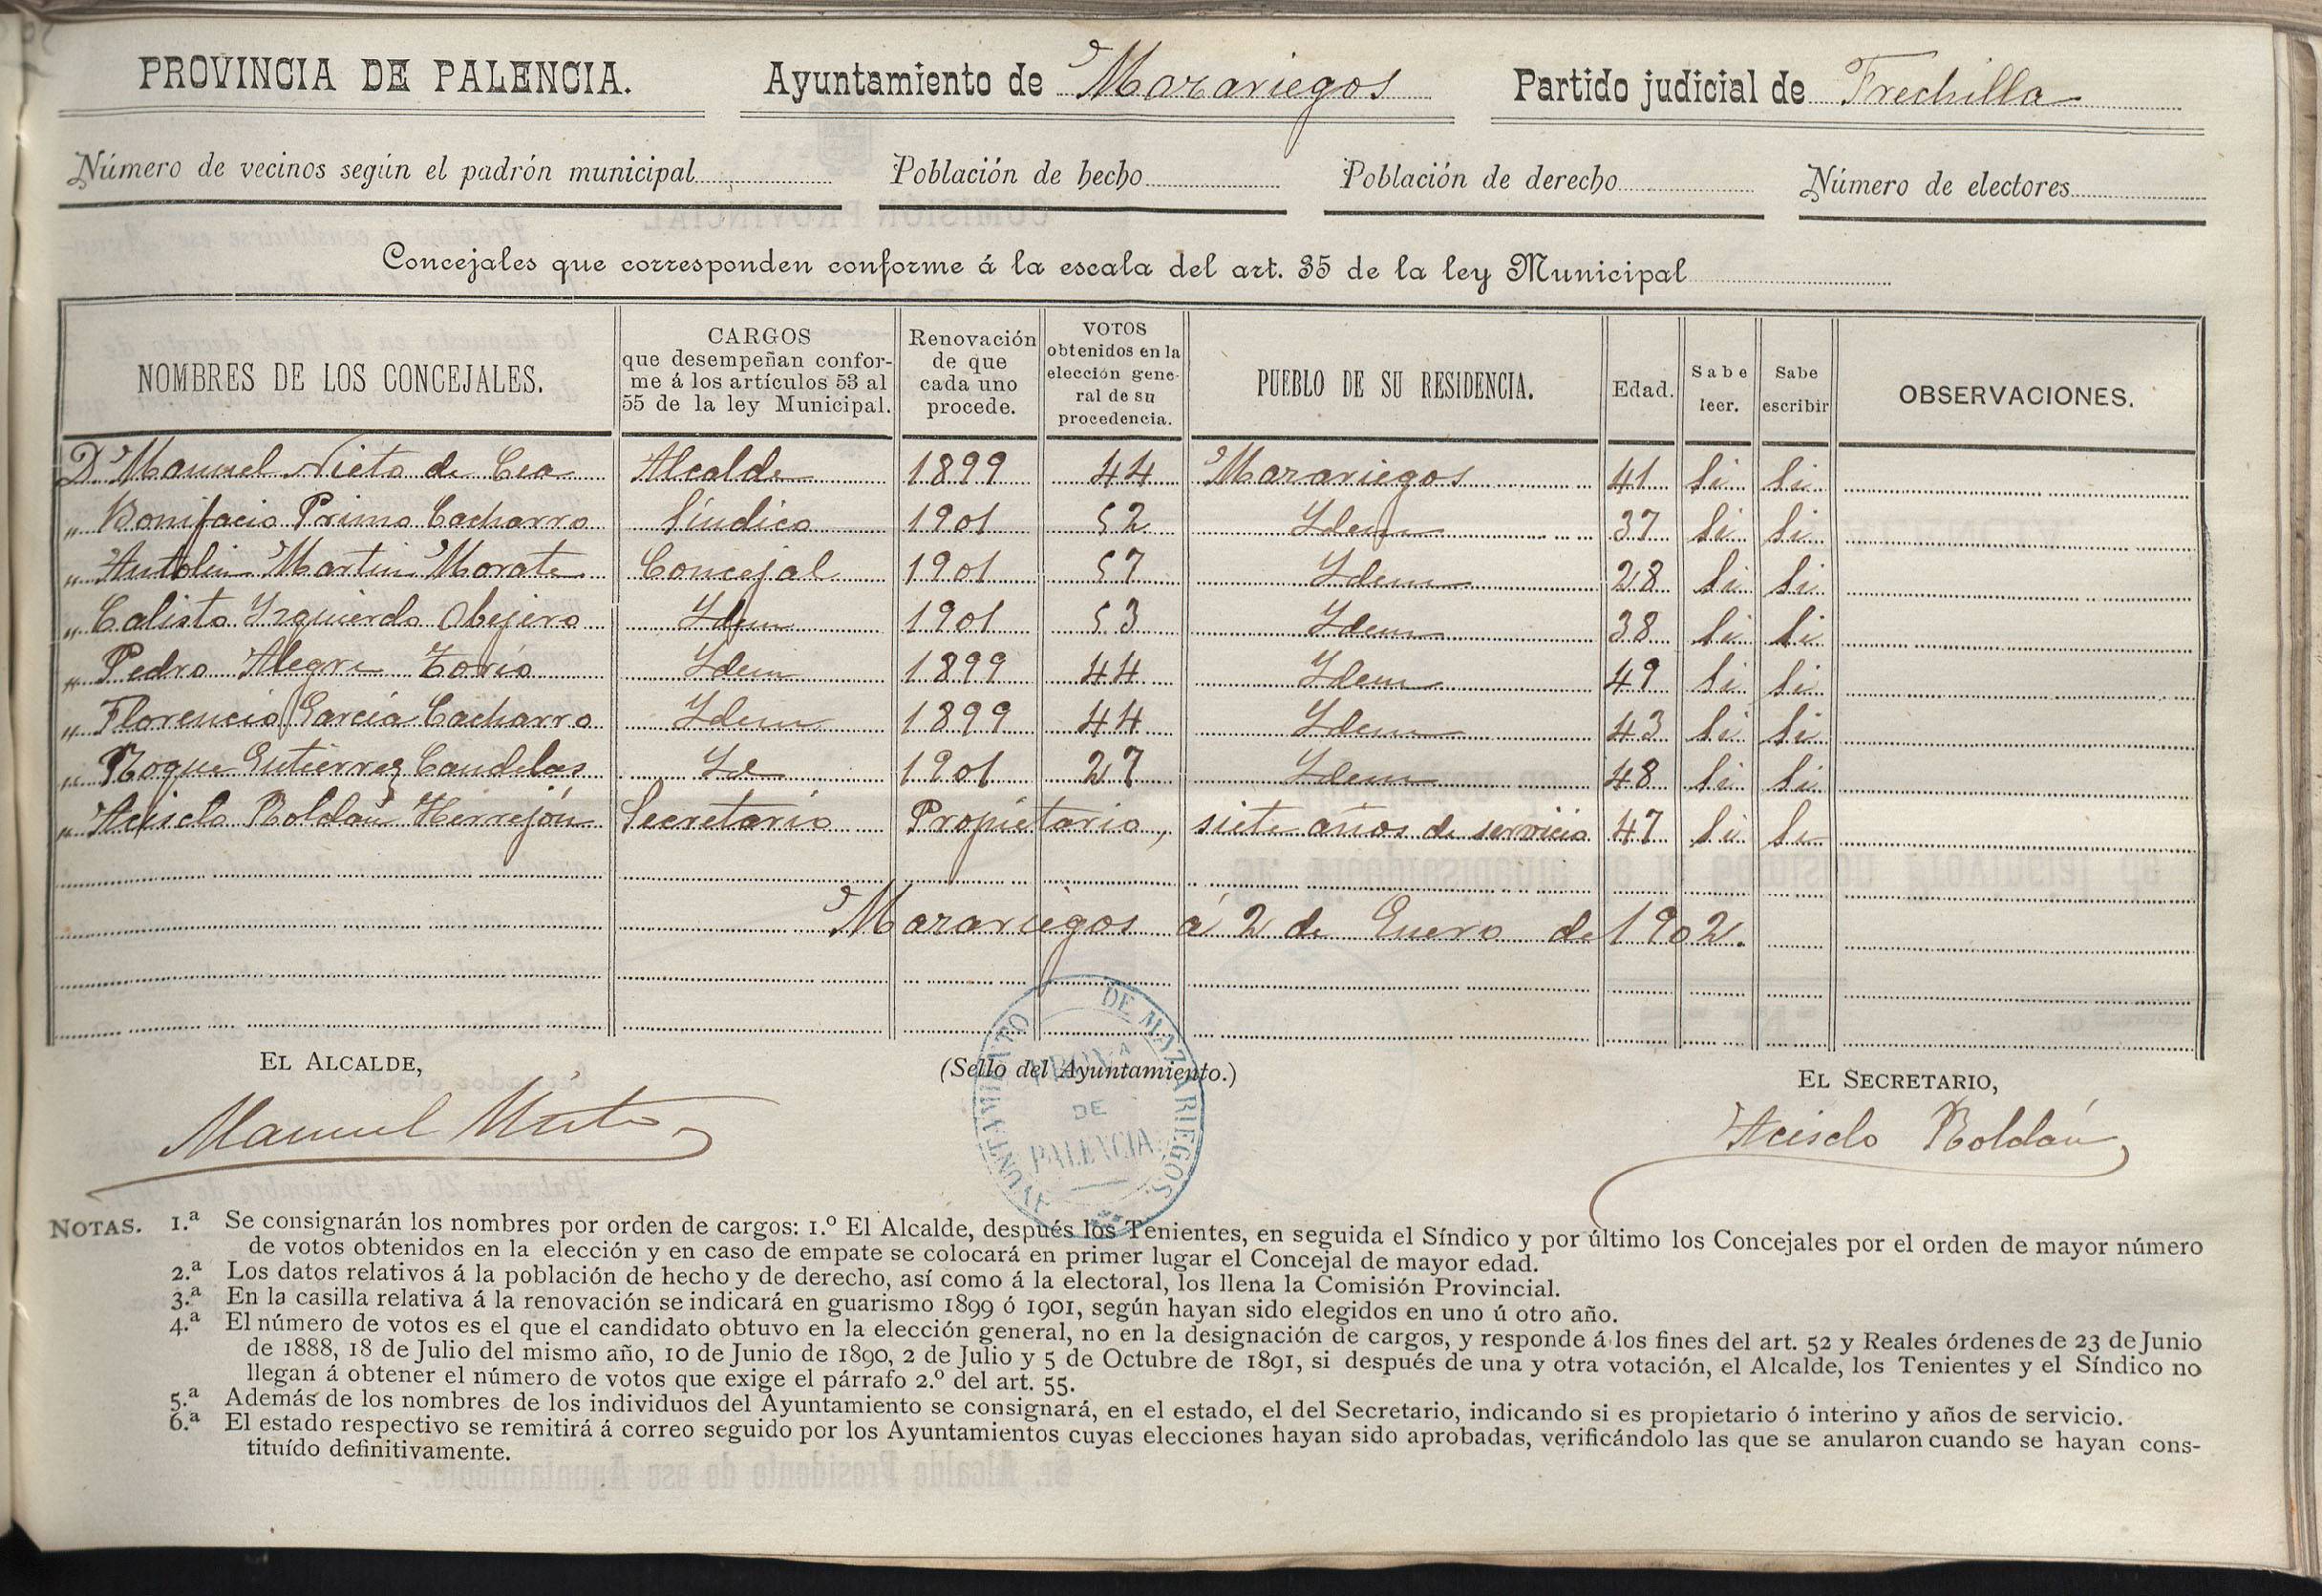 PROVINCIA DE PALENCIA. Ayuntamiento de Mazariegos Partido judicial de Frechilla
Número de vecinos según el padrón municipal Población de hecho Población de derecho Número de electores
Concejales que corresponden conforme á la escala del art. 35 de la ley Municipal
NOMBRES DE LOS CONCEJALES. CARGOS que desempeñan confor-me á los artículos 53 al 55 de la ley Municipal. Renovación de que cada uno procede. VOTOS obtenidos en la elección gene-ral de su procedencia. PUEBLO DE SU RESIDENCIA. Edad. Sabe leer. Sabe escribir OBSERVACIONES.
D. Manuel Nieto de Cea Alcalde 1899 44 Mazariegos 41 Si Si
„ Bonifacio Primo Cacharro Síndico 1901 52 Ydem 37 Si Si
„ Antolin Martin Morate Concejal 1901 57 Ydem 28 Si Si
„ Calisto Yzquierdo Abejero Ydem 1901 53 Ydem 38 Si Si
„ Pedro Alegre Torío Ydem 1899 44 Ydem 49 Si Si
„ Florencio García Cacharro Ydem 1899 44 Ydem 43 Si Si
„ Roque Gutierrez Candelas Yd 1901 27 Ydem 48 Si Si
„ Acisclo Roldán Herrejón Secretario Propietario, siete años de servicio 47 Si Si
Mazariegos á 2 de Enero de 1902.
EL ALCALDE, (Sello del Ayuntamiento.) EL SECRETARIO,
Manuel Nieto Acisclo Roldán
AYUNTAMIENTO DE MAZARIEGOS.
PROV.ª
DE
PALENCIA
NOTAS. 1.ª Se consignarán los nombres por orden de cargos: 1.º El Alcalde, después los Tenientes, en seguida el Síndico y por último los Concejales por el orden de mayor número
de votos obtenidos en la elección y en caso de empate se colocará en primer lugar el Concejal de mayor edad.
2.ª Los datos relativos á la población de hecho y de derecho, así como á la electoral, los llena la Comisión Provincial.
3.ª En la casilla relativa á la renovación se indicará en guarismo 1899 ó 1901, según hayan sido elegidos en uno ú otro año.
4.ª El número de votos es el que el candidato obtuvo en la elección general, no en la designación de cargos, y responde á los fines del art. 52 y Reales órdenes de 23 de Junio
de 1888, 18 de Julio del mismo año, 10 de Junio de 1890, 2 de Julio y 5 de Octubre de 1891, si después de una y otra votación, el Alcalde, los Tenientes y el Síndico no
llegan á obtener el número de votos que exige el párrafo 2.º del art. 55.
5.ª Además de los nombres de los individuos del Ayuntamiento se consignará, en el estado, el del Secretario, indicando si es propietario ó interino y años de servicio.
6.ª El estado respectivo se remitirá á correo seguido por los Ayuntamientos cuyas elecciones hayan sido aprobadas, verificándolo las que se anularon cuando se hayan cons-
tituído definitivamente.